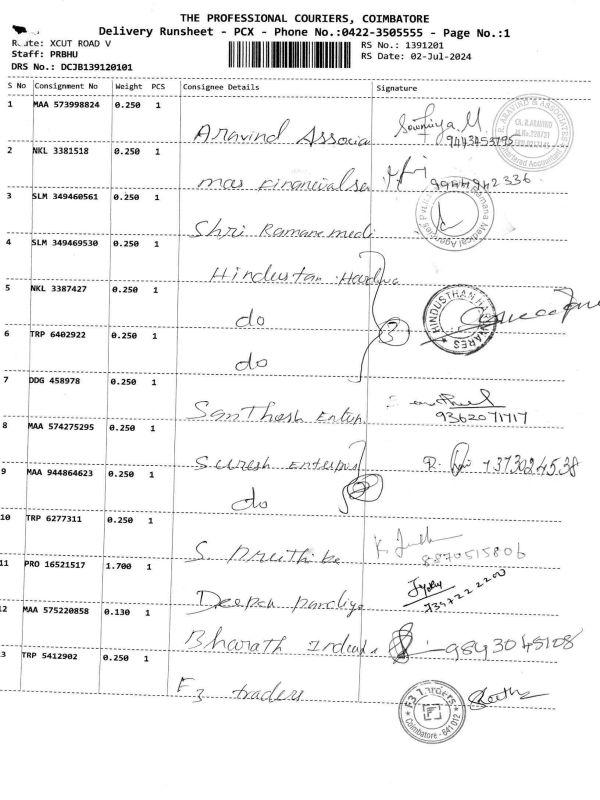 THE PROFESSIONAL COURIERS, COIMBATORE
Delivery Runsheet - PCX - Phone No.:0422-3505555 - Page No.:1
Route: XCUT ROAD V
RS No.: 1391201
Staff: PRBHU
RS Date: 02-Jul-2024
DRS No.: DCJB139120101
S No Consignment No Weight PCS Consignee Details Signature
1 MAA 573998824 0.250 1
Aravind Associa Sowmiya.M
9443453795
2 NKL 3381518 0.250 1
mas Financial se 9944942336
3 SLM 349460561 0.250 1
Shri Ramane medi
4 SLM 349469530 0.250 1
Hindustan Hardwa
5 NKL 3387427 0.250 1
do 3 HINDUSTHAN HARDWARES
6 TRP 6402922 0.250 1
do
7 DDG 458978 0.250 1
Santhosh Enterp
9362071717
8 MAA 574275295 0.250 1
Suresh Enterpris R.
9 MAA 944864623 0.250 1
do 2
10 TRP 6277311 0.250 1
S. Pruthike K.
8870515806
11 PRO 16521517 1.700 1
Deepan pandiya
12 MAA 575220858 0.130 1
Bharath 9843045108
3 TRP 5412902 0.250 1
F3 traders F3 Traders
Coimbatore - 641 012